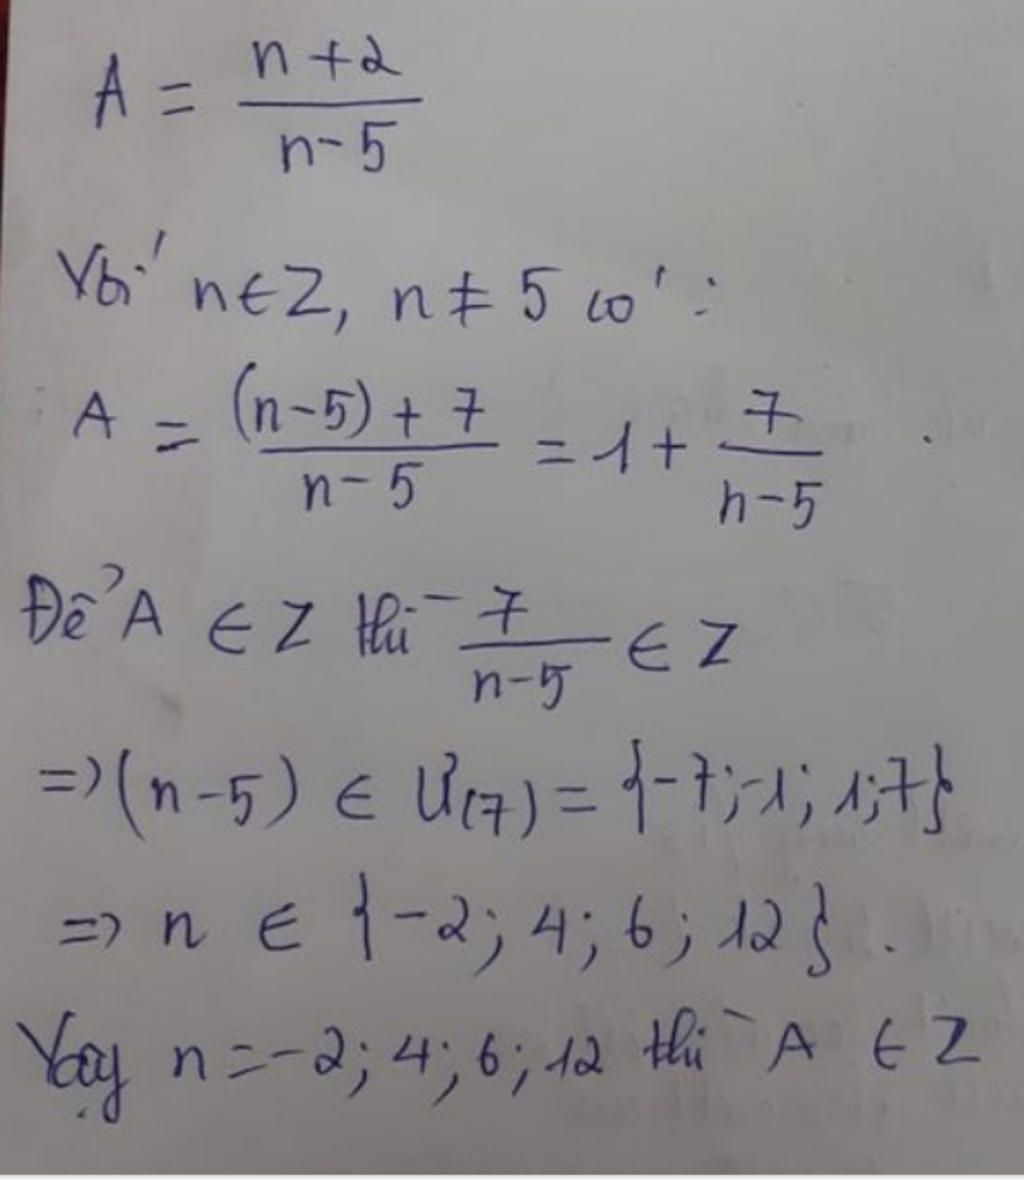 A = \frac{n+2}{n-5}
Với n ∈ Z, n ≠ 5 có :
A = \frac{(n-5)+7}{n-5} = 1 + \frac{7}{n-5} .
Để A ∈ Z thì \frac{7}{n-5} ∈ Z
=> (n-5) ∈ Ư(7) = {-7; -1; 1; 7}
=> n ∈ {-2; 4; 6; 12} .
Vậy n = -2; 4; 6; 12 thì A ∈ Z